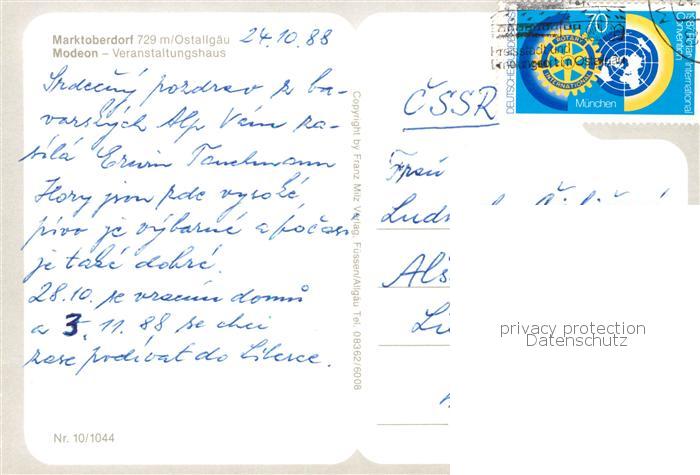 Marktoberdorf 729 m/Ostallgäu
Modeon – Veranstaltungshaus
24.10.88
Srdečný pozdrav z ba-
vorských Alp Vám za-
sílá Erwin
Hory jsou zde vysoké,
pivo je výborné a počasí
je také dobré.
28.10. se vracím domů
a 3.11.88 se chci
zase podívat do Liberce.
Nr. 10/1044
Copyright by Franz Milz Verlag, Füssen/Allgäu Tel. 08362/6008
ČSSR
DEUTSCHE BUNDESPOST
70
ROTARY
INTERNATIONAL
München
1987 Rotary International
Convention
Frau
privacy protection
Datenschutz